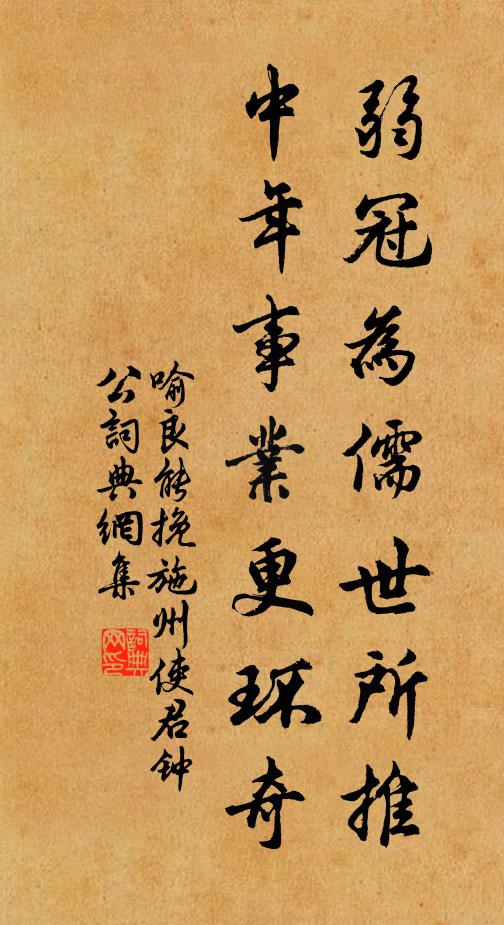 弱冠為儒世所推
中年事業更环奇
喻良能挽施州使君钟
公詞典網集
詞典
网印